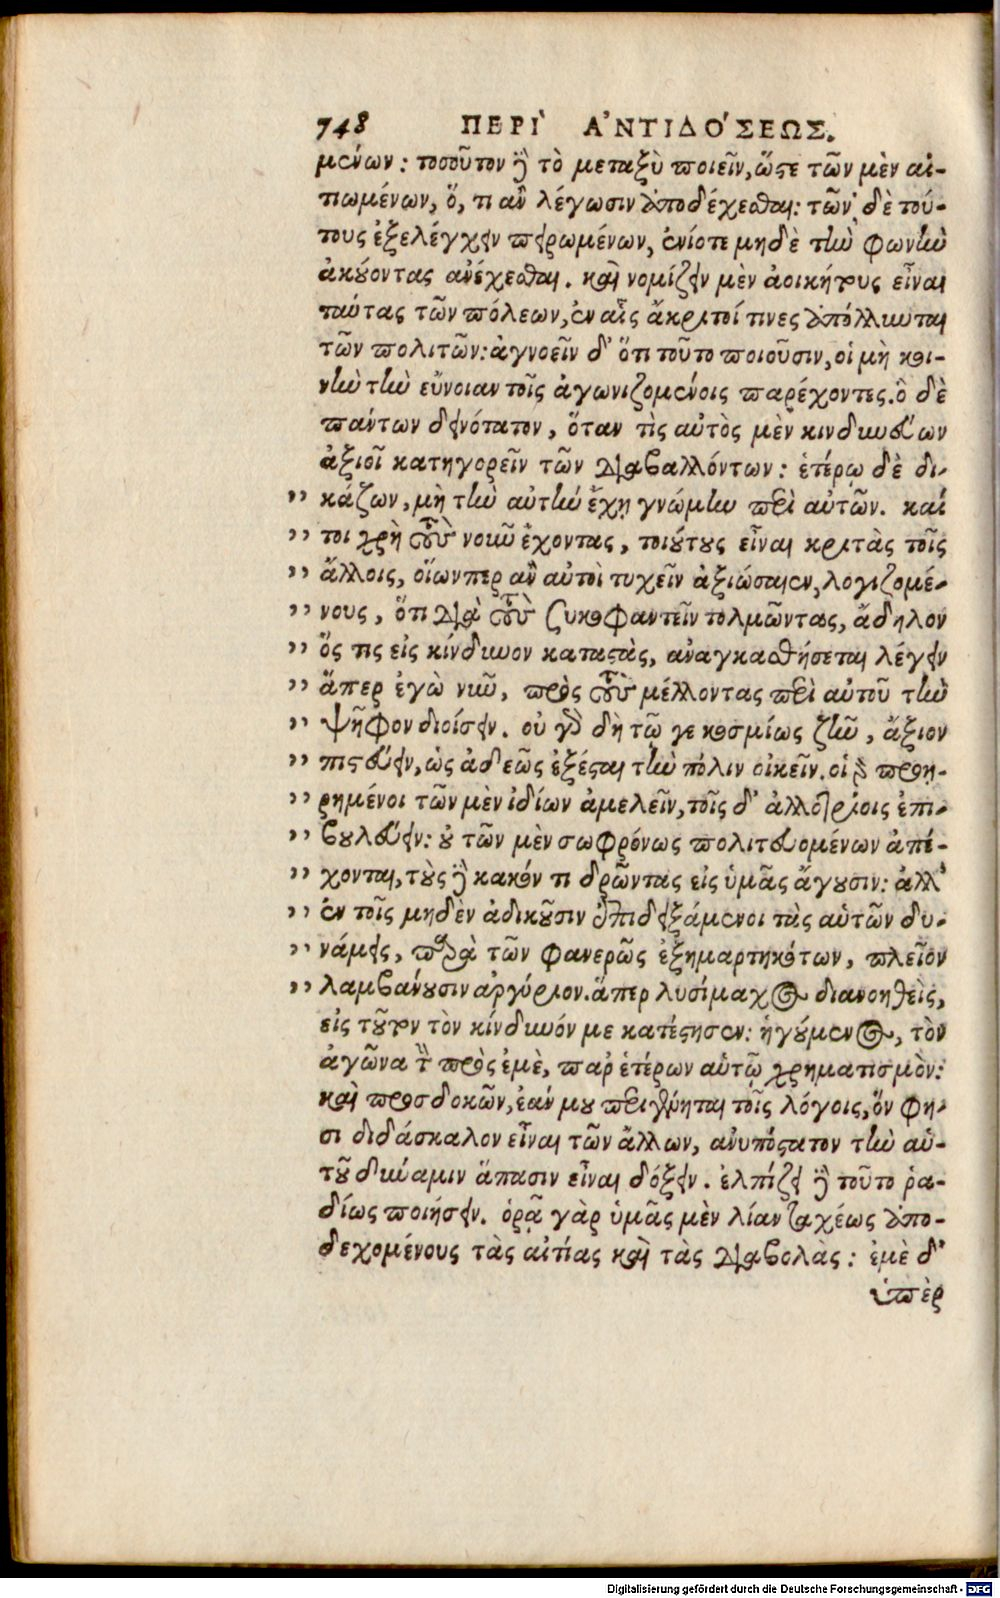 748 ΠΕΡΙ` Α᾿ΝΤΙΔΟ´ΣΕΩΣ.
μένων: τοσοῦτον δὲ τὸ μεταξὺ ποιεῖν, ὥστε τῶν μὲν αἰ-
τιωμένων, ὅ, τι ἂν λέγωσιν ἀποδέχεσθαι: τῶν δὲ τού-
τους ἐξελέγχειν πειρωμένων, ἐνίοτε μηδὲ τὴν φωνὴν
ἀκούοντας ἀνέχεσθαι. καὶ νομίζειν μὲν ἀοικήτους εἶναι
ταύτας τῶν πόλεων, ἐν αἷς ἄκριτοί τινες ἀπόλλυνται
τῶν πολιτῶν: ἀγνοεῖν δ' ὅτι τοῦτο ποιοῦσιν, οἱ μὴ κοι-
νὴν τὴν εὔνοιαν τοῖς ἀγωνιζομένοις παρέχοντες. ὃ δὲ
πάντων δεινότατον, ὅταν τὶς αὐτὸς μὲν κινδυνεύων
ἀξιοῖ κατηγορεῖν τῶν διαβαλλόντων: ἑτέρῳ δὲ δι-
,, κάζων, μὴ τὴν αὐτὴν ἔχῃ γνώμην περὶ αὐτῶν. καί
,, τοι χρὴ τοὺς νοῦν ἔχοντας, τοιούτους εἶναι κριτὰς τοῖς
,, ἄλλοις, οἵων περ ἂν αὐτοὶ τυχεῖν ἀξιώσαιεν, λογιζομέ-
,, νους, ὅτι διὰ τοὺς συκοφαντεῖν τολμῶντας, ἄδηλον
,, ὅς τις εἰς κίνδυνον καταστὰς, ἀναγκασθήσεται λέγειν
,, ἅπερ ἐγὼ νῦν, πρὸς τοὺς μέλλοντας περὶ αὐτοῦ τὴν
,, ψῆφον διοίσειν. οὐ γὰρ δὴ τῷ γε κοσμίως ζῆν, ἄξιον
,, πιστεύειν, ὡς ἀδεῶς ἐξέσται τὴν πόλιν οἰκεῖν. οἱ γὰρ προῃ-
,, ρημένοι τῶν μὲν ἰδίων ἀμελεῖν, τοῖς δ' ἀλλοτρίοις ἐπι-
,, βουλεύειν: οὐ τῶν μὲν σωφρόνως πολιτευομένων ἀπέ-
,, χονται, τοὺς δὲ κακόν τι δρῶντας εἰς ὑμᾶς ἄγουσιν: ἀλλ'
,, ἐν τοῖς μηδὲν ἀδικοῦσιν ἐπιδειξάμενοι τὰς αὑτῶν δυ-
,, νάμεις, παρὰ τῶν φανερῶς ἐξημαρτηκότων, πλεῖον
,, λαμβάνουσιν ἀργύριον. ἅπερ λυσίμαχος διανοηθεὶς,
εἰς τοῦτον τὸν κίνδυνόν με κατέστησεν: ἡγούμενος, τὸν
ἀγῶνα τὸν πρὸς ἐμὲ, παρ' ἑτέρων αὑτῷ χρηματισμὸν:
καὶ προσδοκῶν, ἐάν μου περιγένηται τοῖς λόγοις, ὅν φη-
σι διδάσκαλον εἶναι τῶν ἄλλων, ἀνυπόστατον τὴν αὑ-
τοῦ δύναμιν ἅπασιν εἶναι δόξειν. ἐλπίζει δὲ τοῦτο ῥα-
δίως ποιήσειν. ὁρᾷ γὰρ ὑμᾶς μὲν λίαν ταχέως ἀπο-
δεχομένους τὰς αἰτίας καὶ τὰς διαβολὰς: ἐμὲ δ'
ὑπὲρ
Digitalisierung gefördert durch die Deutsche Forschungsgemeinschaft - DFG